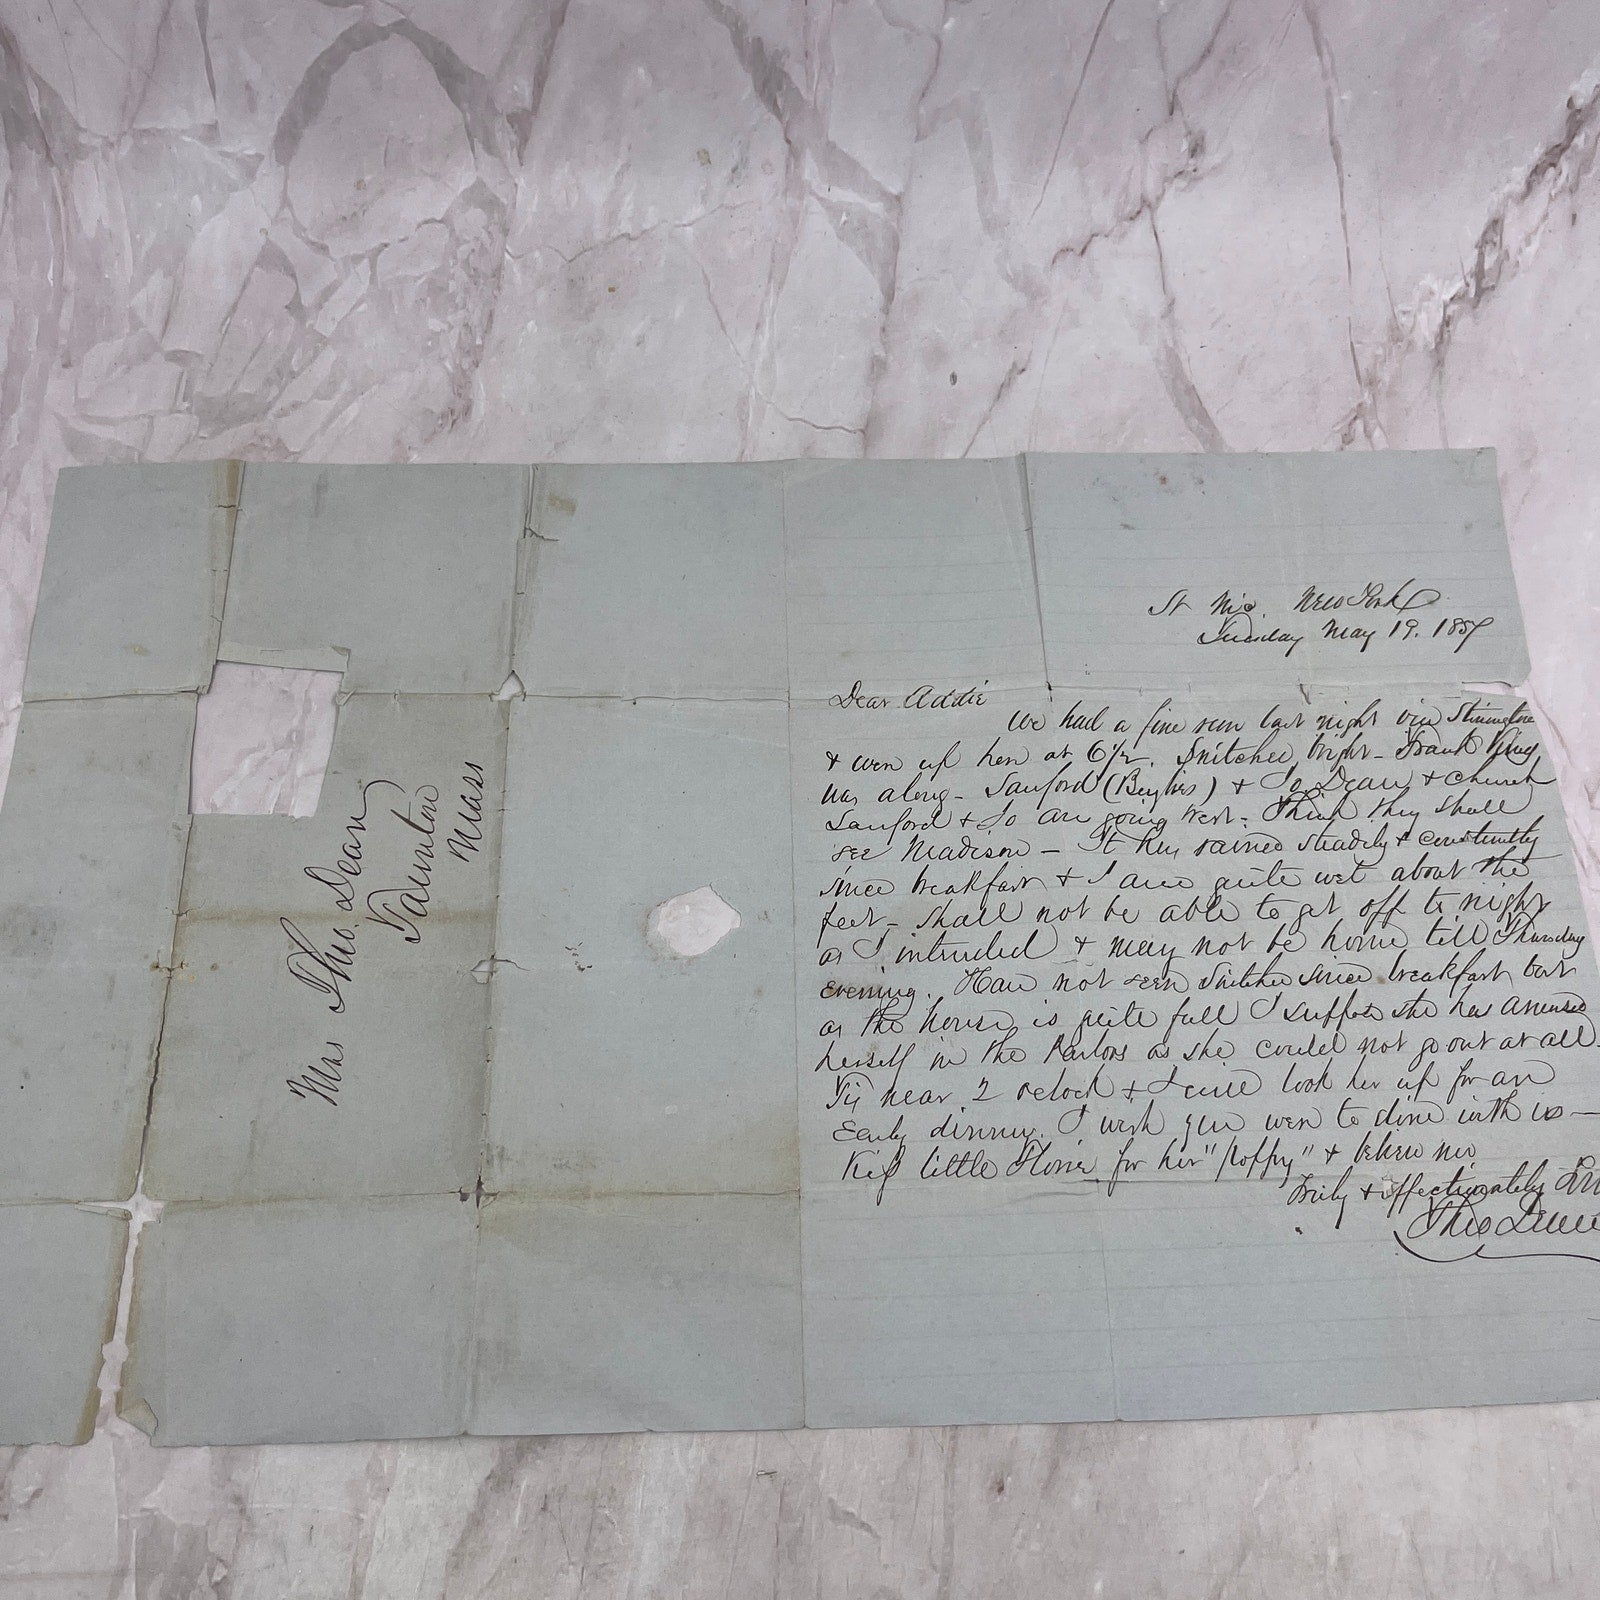 Mrs Tho. Dean
Taunton
Mass
St Nic. New York
Tuesday May 19. 1857
Dear Addie
We had a fine run last night via Stonington
& were up here at 6 1/2. bright - Frank King
was along - Sanford & Jo Dean & Church
Sanford & Jo are going West - Think they shall
see Madison - It has rained steadily & constantly
since breakfast & I am quite wet about the
feet - Shall not be able to get off to night
as I intended & may not be home till Thursday
evening. Have not seen since breakfast but
as the house is quite full I suppose she has amused
herself in the Parlors as she could not go out at all.
Tis near 2 oclock & I will look her up for an
Early dinner. I wish you were to dine with us -
Kiss little for her "Poppy" & believe me
Truly & affectionately
Tho Dean